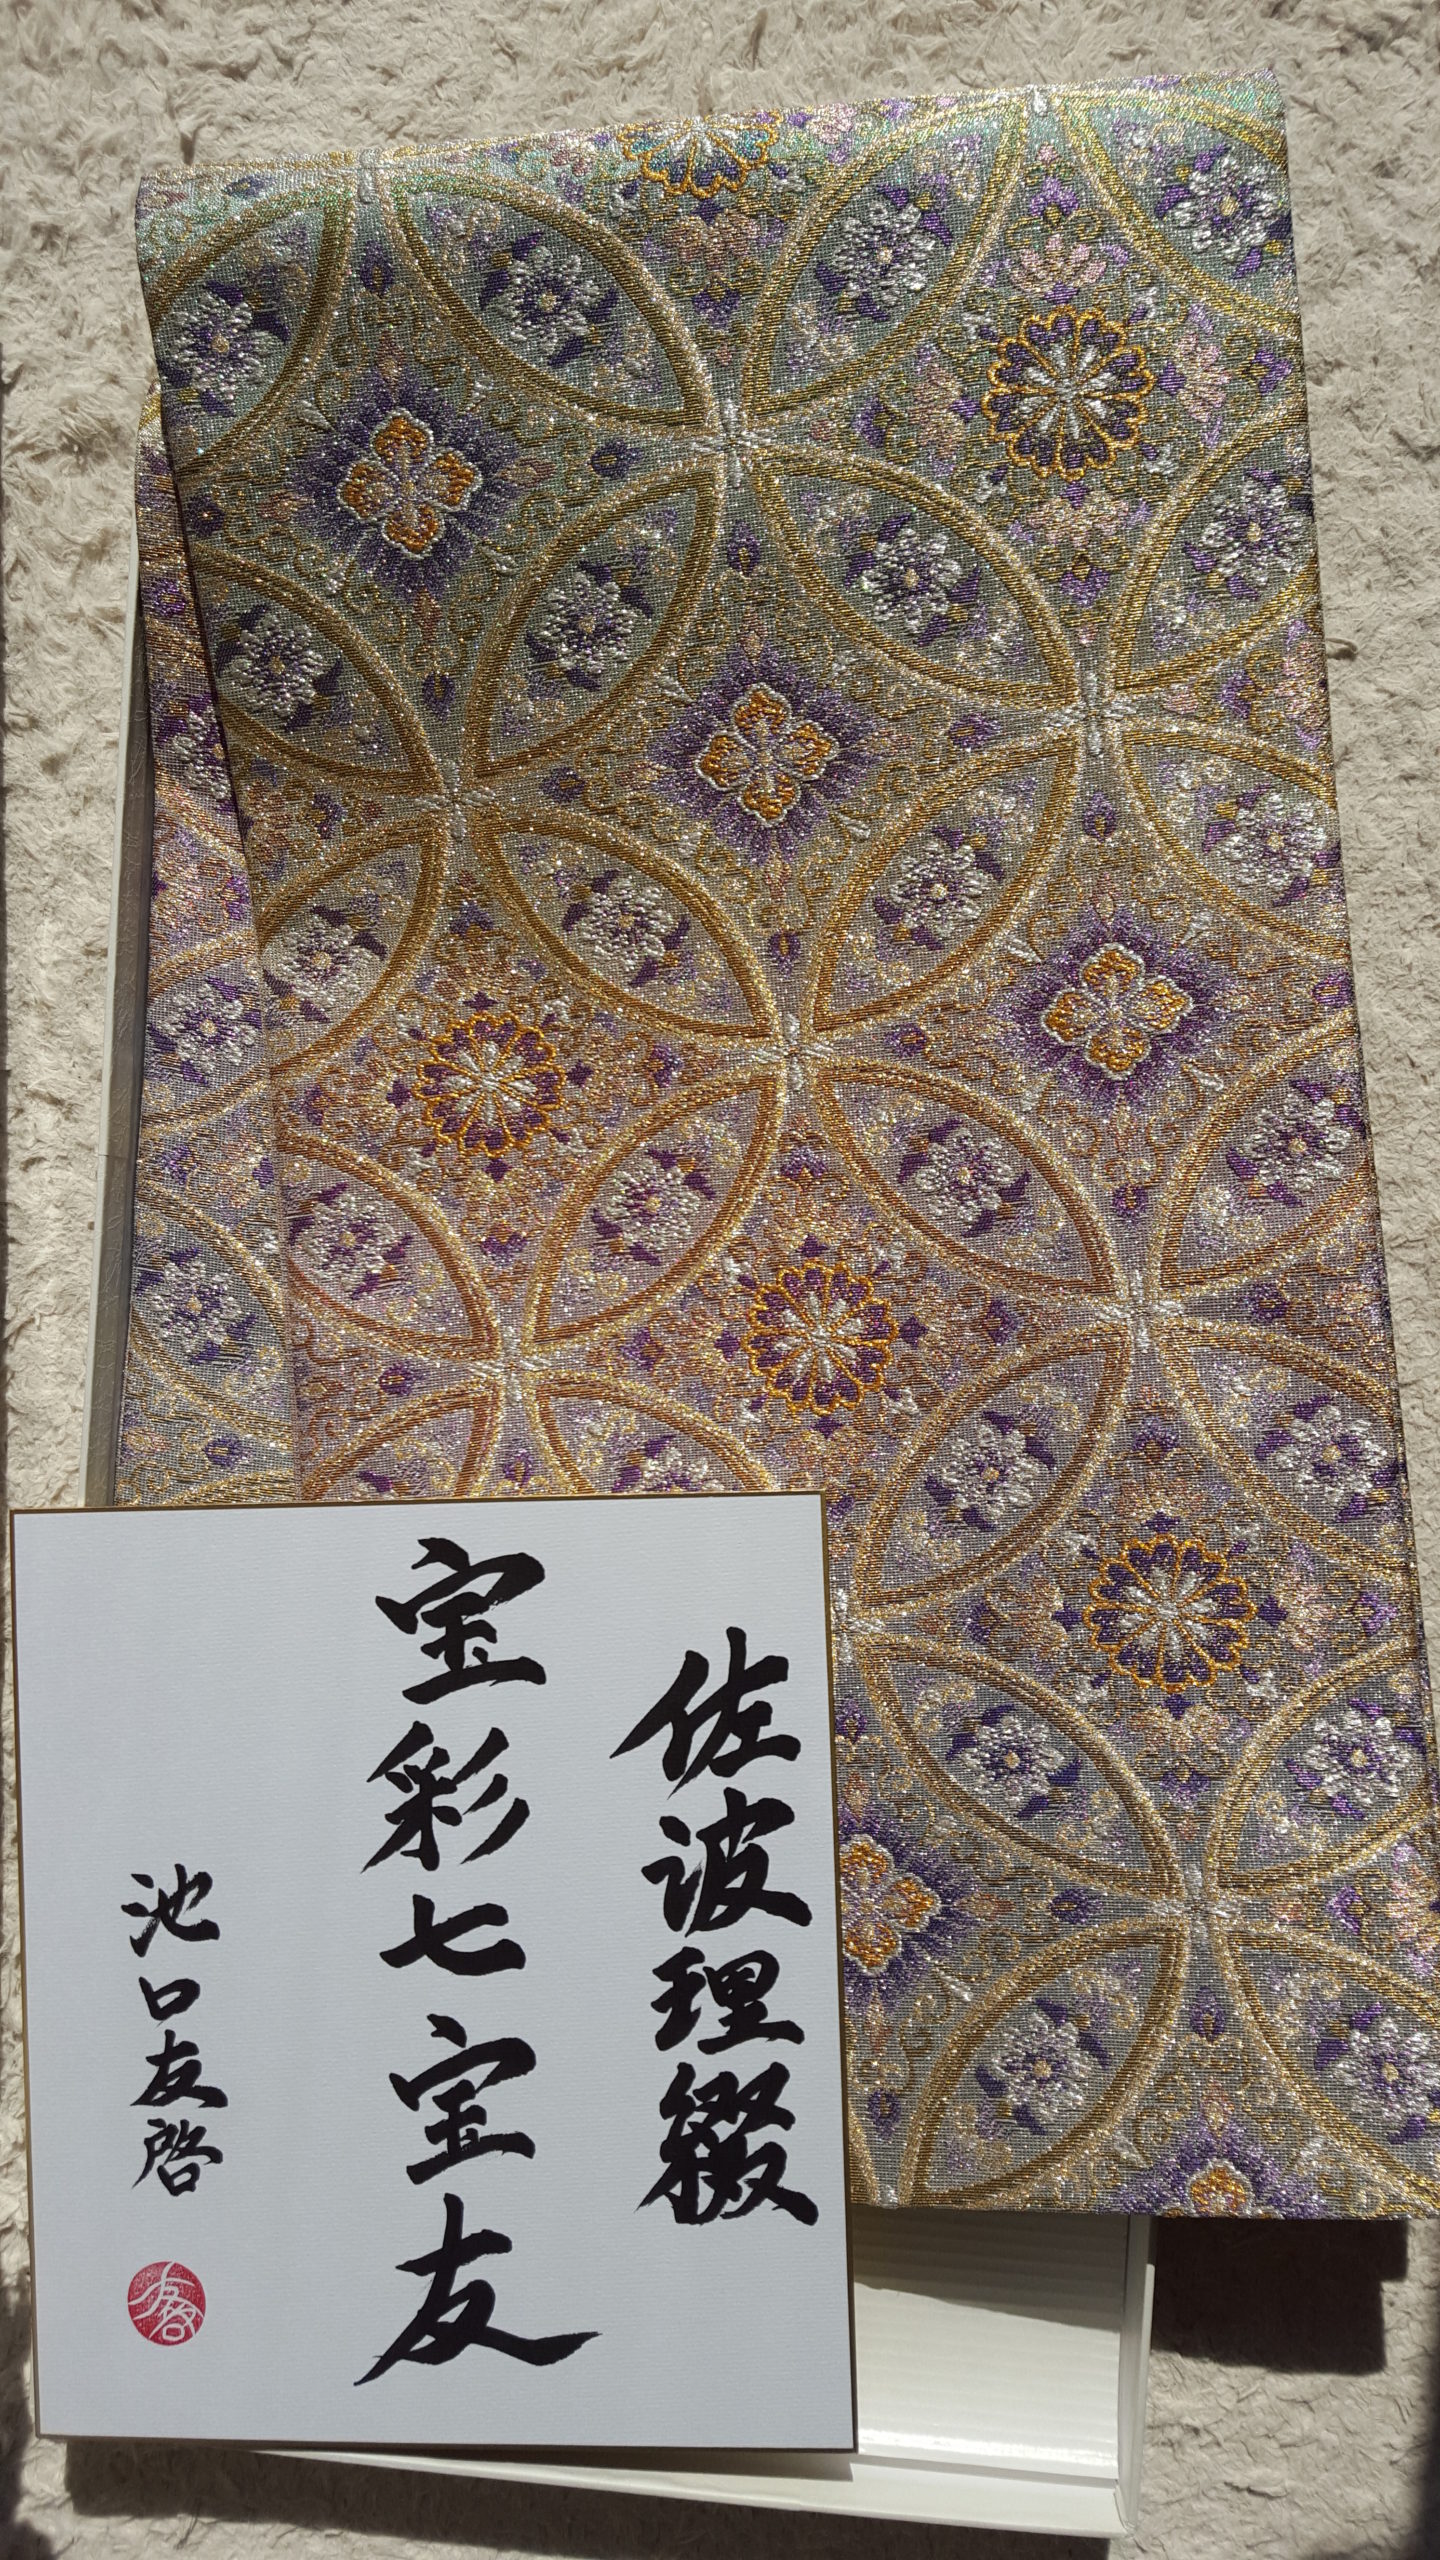 佐波理綴
宝彩七宝友
池口友啓
友啓